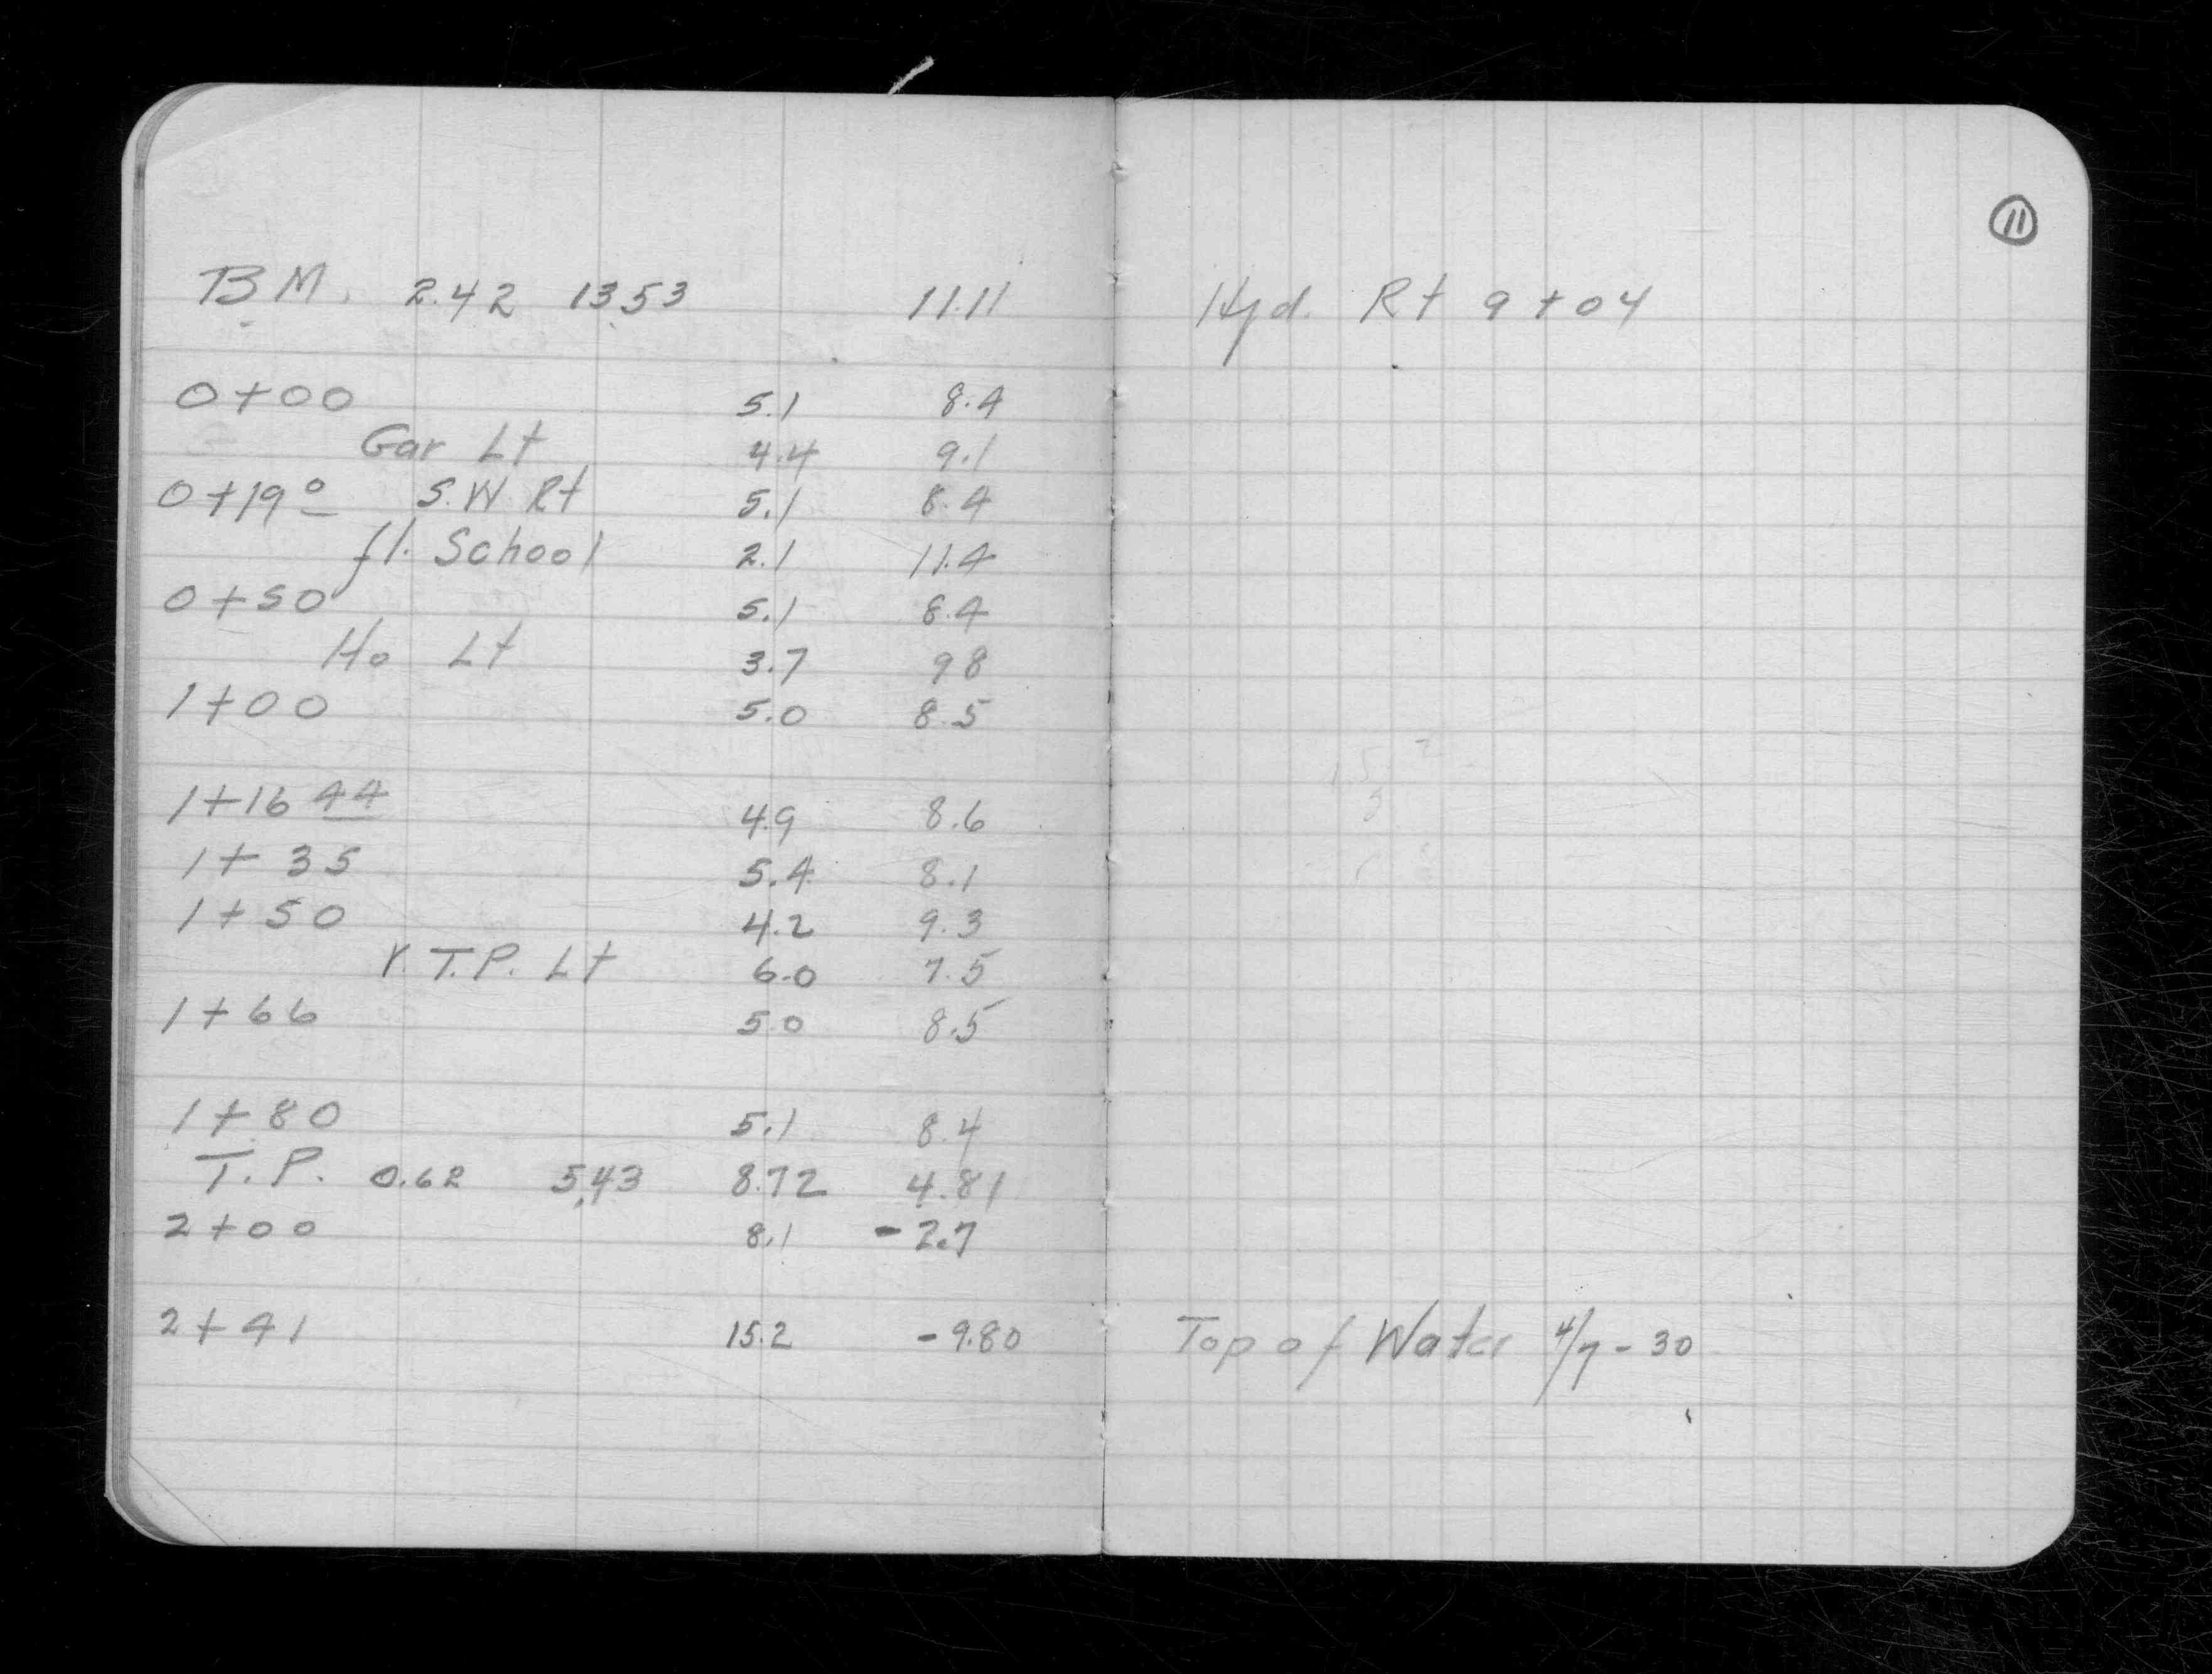 11
BM. 2.42 13.53 11.11 Hyd. Rt 9+04
0+00 5.1 8.4
Gar Lt 4.4 9.1
0+19º S.W. Rt 5.1 8.4
fl. School 2.1 11.4
0+50 5.1 8.4
Ho Lt 3.7 98
1+00 5.0 8.5
1+16 44 4.9 8.6
1+35 5.4 8.1
1+50 4.2 9.3
V.T.P. Lt 6.0 7.5
1+66 5.0 8.5
1+80 5.1 8.4
T.P. 0.62 5.43 8.72 4.81
2+00 8.1 -2.7
2+41 15.2 -9.80 Top of Water 4/7-30